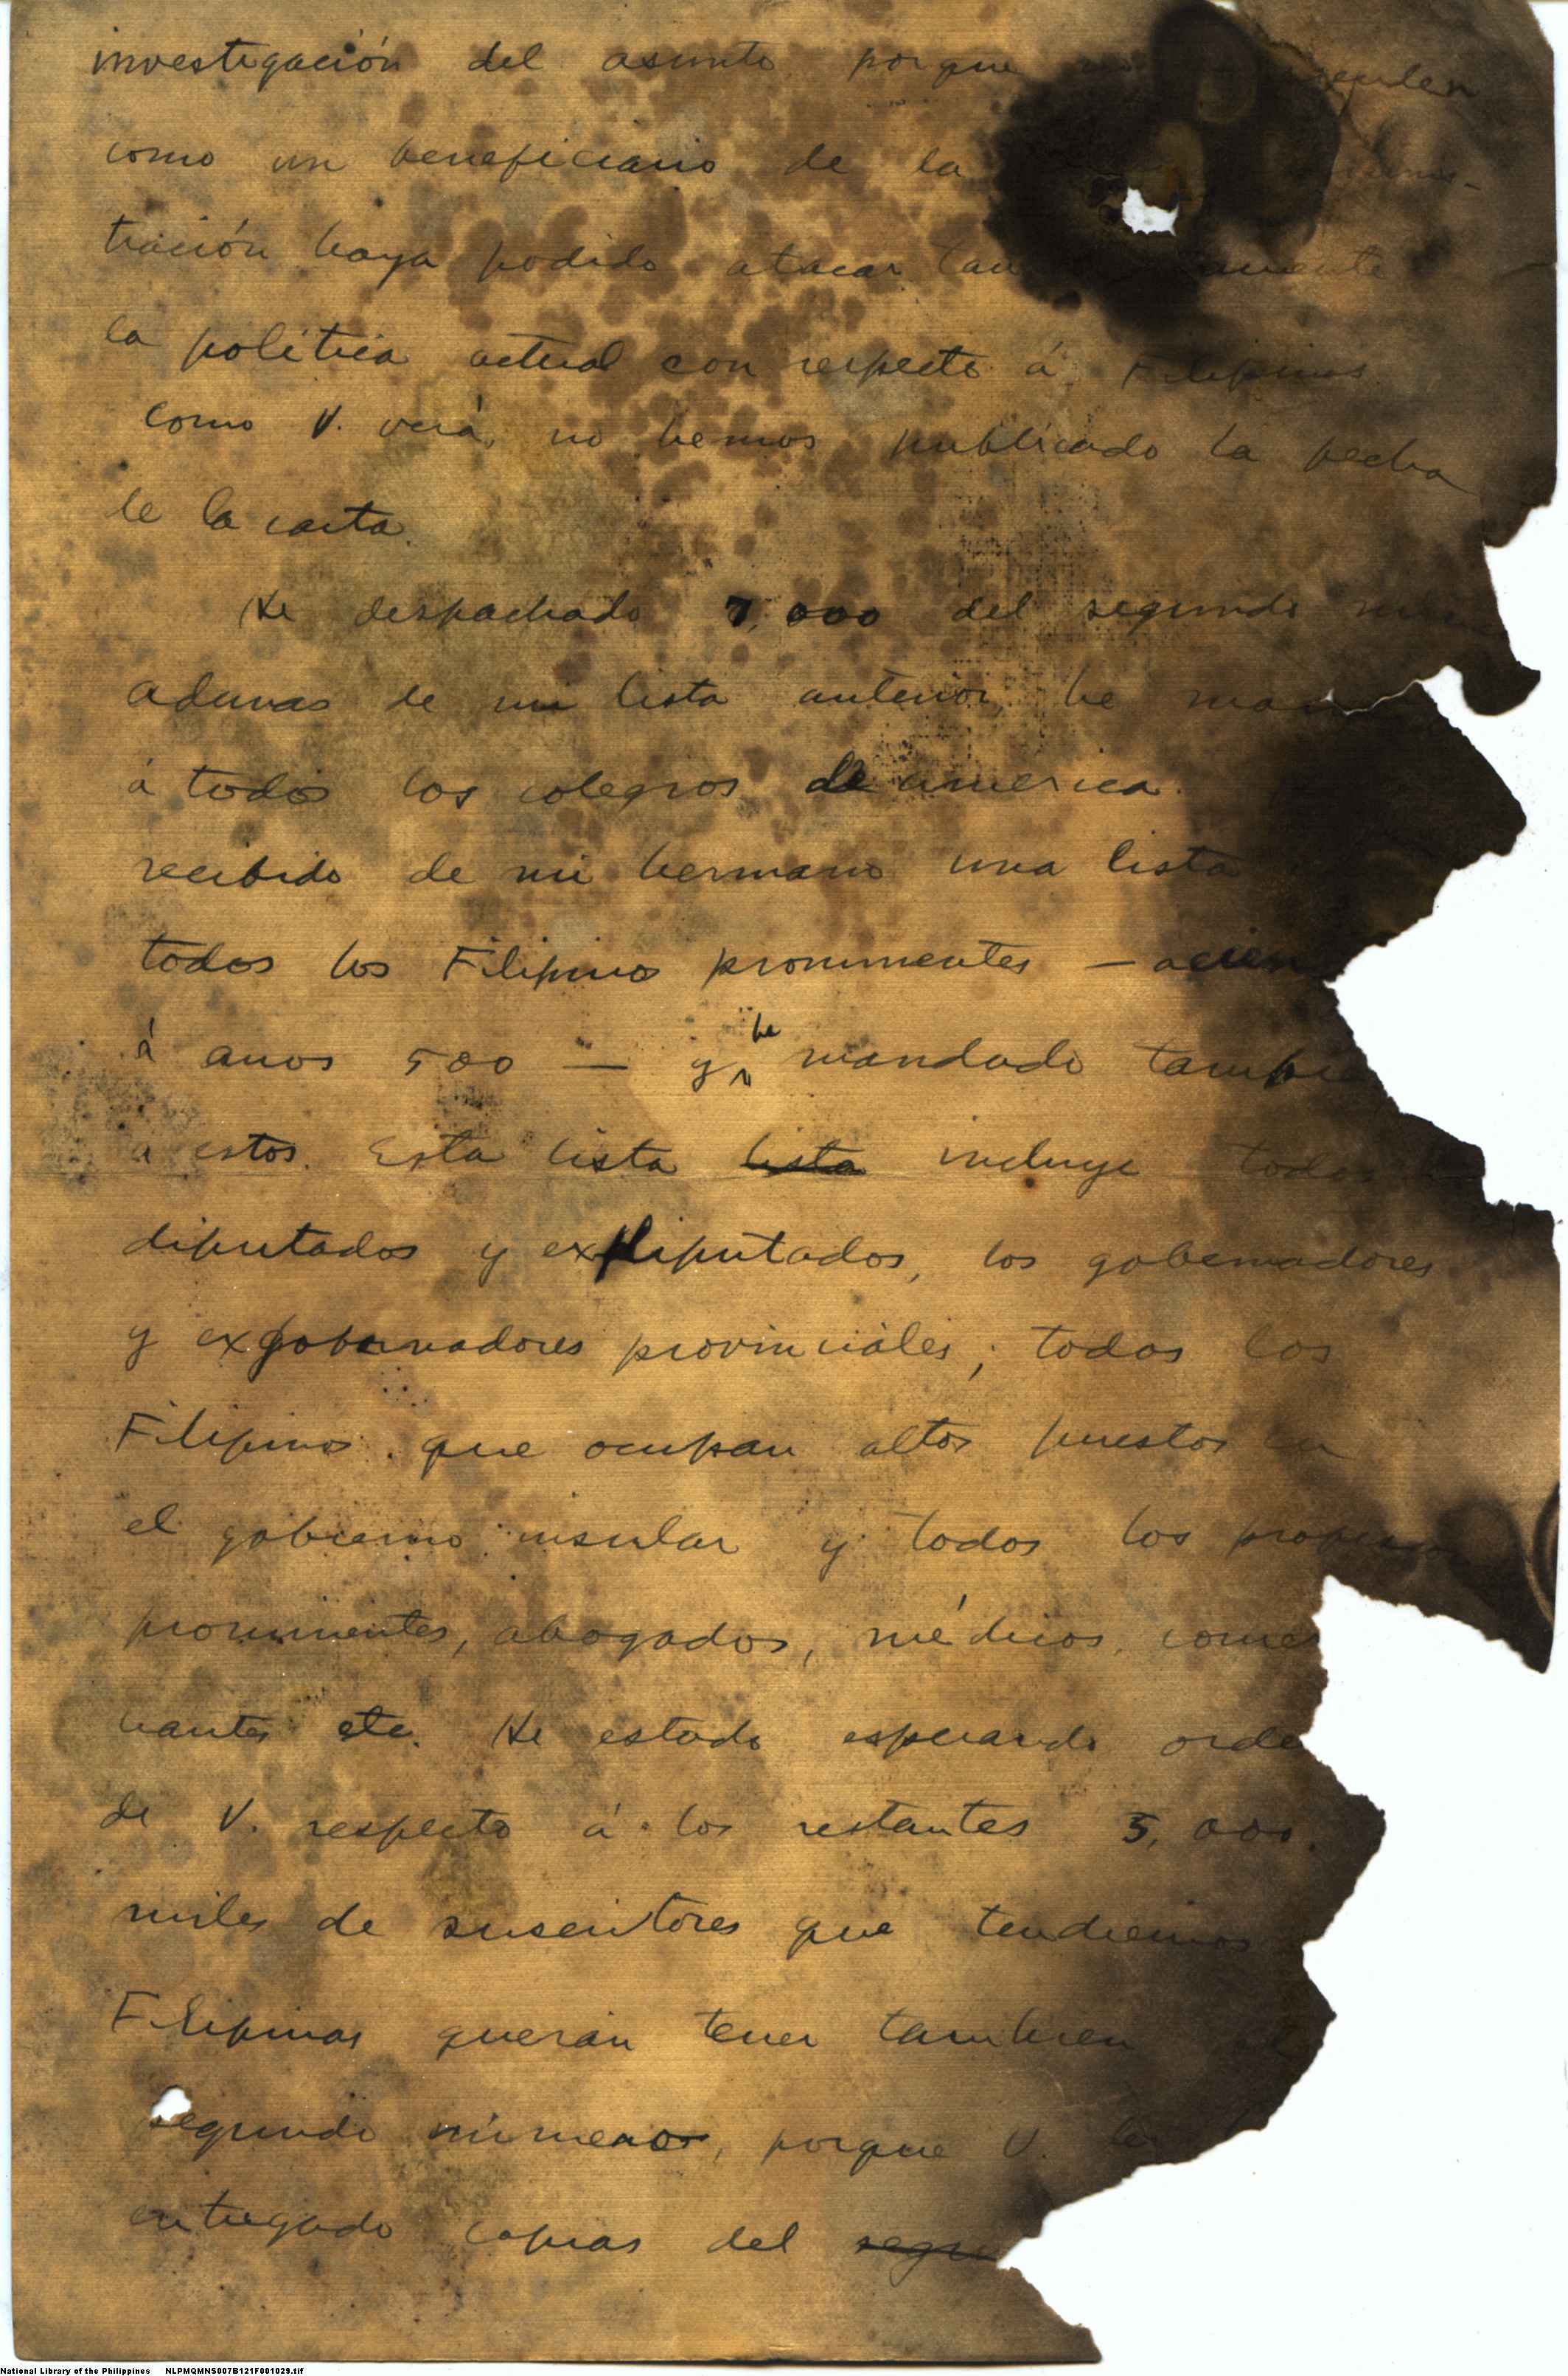 investigación del asunto porque no
como un beneficiario de la
tración haya podido atacar tan
la política actual con respecto á Filipinas.
Como V. verá, no hemos publicado la fecha
de la carta.
He despachado 7,000 del segundo
ademas de mi lista anterior, he
á todos los colegios de America.
recibido de mi hermano una lista
todos los Filipinos prominentes —
á unos 500 — y he mandado
a estos. Esta lista lista incluye todos
diputados y exdiputados, los gobernadores
y exgobernadores provinciales; todos los
Filipinos que ocupan altos puestos en
el gobierno insular y todos los
prominentes, abogados, médicos, comer
ciantes etc. He estado esperando orde
de V. respecto á los restantes 5,000.
miles de suscritores que tendremos
Filipinas querán tener tambien el
segundo número, porque V. les
entregado copias del segu
National Library of the Philippines NLPMQMNS007B121F001029.tif